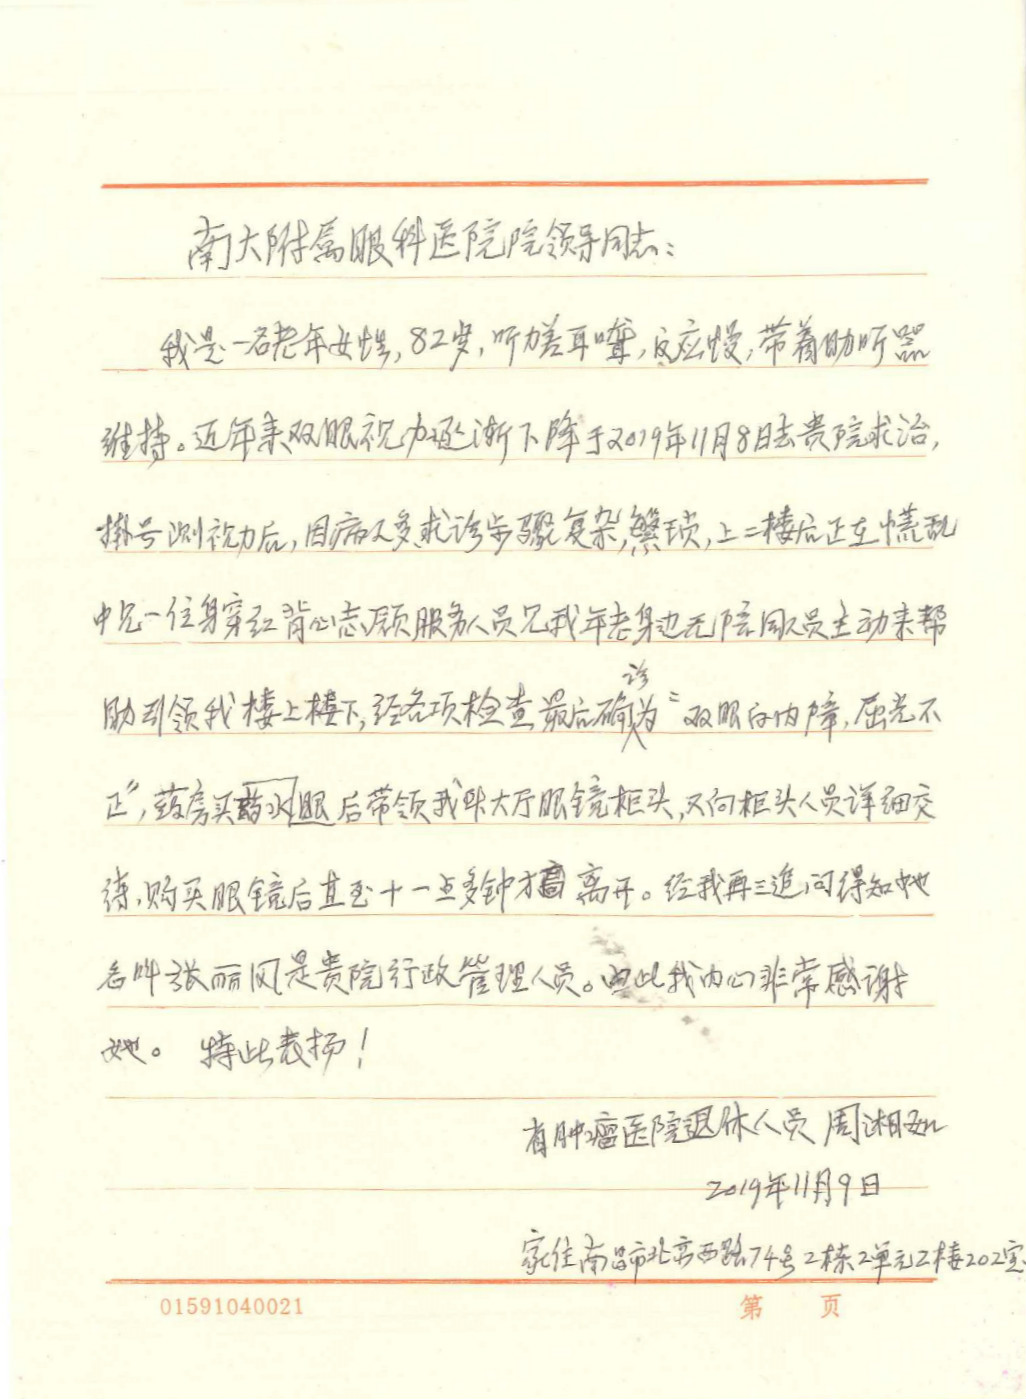 南大附属眼科医院院领导同志：
我是一名老年女性，82岁，听力差耳聋，反应慢，带着助听器
维持。近年来双眼视力逐渐下降于2019年11月8日去贵院求治，
挂号测视力后，因病人多求诊步骤复杂，繁琐，上二楼后正在慌乱
中见一位身穿红背心志愿服务人员见我年老身边无陪同人员主动来帮
助引领我楼上楼下，经各项检查最后确诊为“双眼白内障，屈光不
正”，药房买药水眼后带领我来大厅眼镜柜头，又向柜头人员详细交
待，购买眼镜后直至十一点多钟才离开。经我再三追问得知她
名叫张丽凤是贵院行政管理人员。由此我内心非常感谢
她。 特此表扬！
省肿瘤医院退休人员 周湘如
2019年11月9日
家住南昌市北京西路74号2栋2单元2楼202室
01591040021 第 页